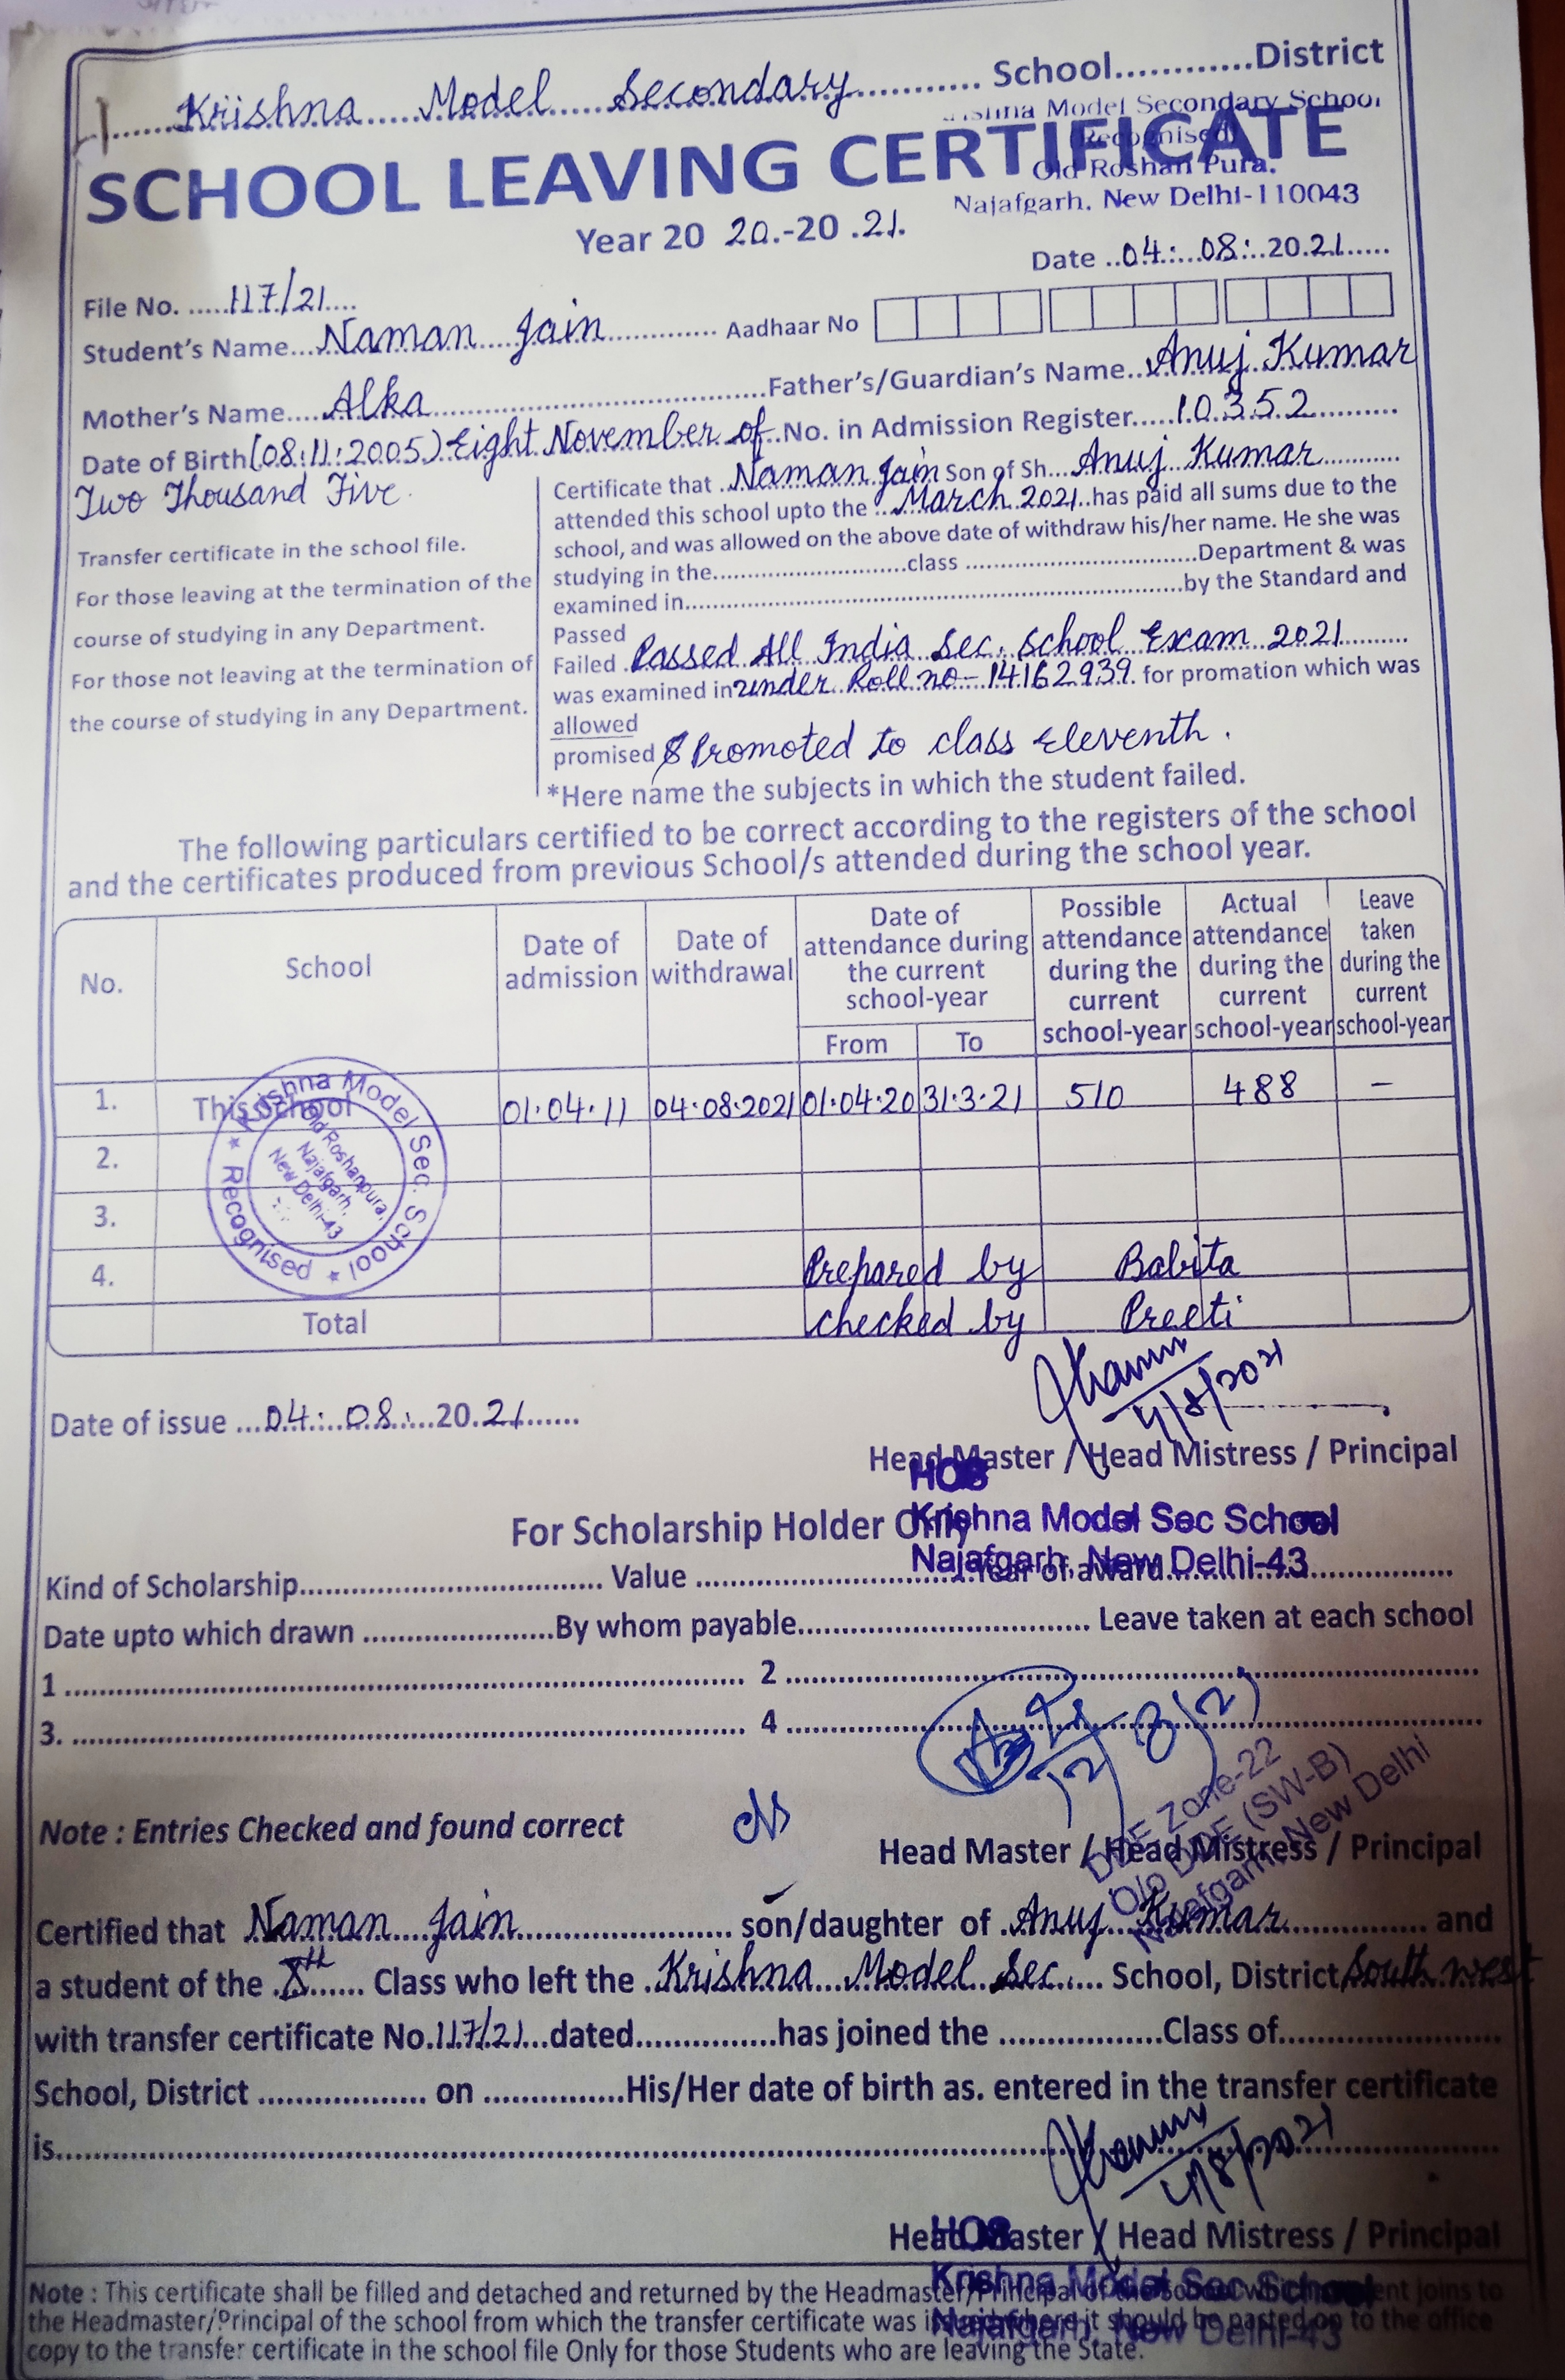 Krishna Model Secondary ............ School............District
Krishna Model Secondary School
Recognised
Old Roshan Pura.
Najafgarh, New Delhi-110043
SCHOOL LEAVING CERTIFICATE
Year 20 20.-20 .21.
Date ..04:...08:..20.21......
File No. .....117/21....
Student's Name...Naman Jain............ Aadhaar No
Mother's Name.....Alka..............Father's/Guardian's Name..Anuj Kumar
Date of Birth (08:11:2005) Eight November of..No. in Admission Register.....10352..........
Two Thousand Five.
Transfer certificate in the school file.
For those leaving at the termination of the
course of studying in any Department.
For those not leaving at the termination of
the course of studying in any Department.
Certificate that ..Naman Jain Son of Sh...Anuj Kumar............
attended this school upto the ..March 2021..has paid all sums due to the
school, and was allowed on the above date of withdraw his/her name. He she was
studying in the............................class .................................Department & was
examined in.........................................................................by the Standard and
Passed
Failed .Passed All India Sec. School Exam 2021..........
was examined in under Roll no- 14162939. for promation which was
allowed
promised & Promoted to class Eleventh.
*Here name the subjects in which the student failed.
The following particulars certified to be correct according to the registers of the school
and the certificates produced from previous School/s attended during the school year.
No. School Date of admission Date of withdrawal Date of attendance during the current school-year Possible attendance during the current school-year Actual attendance during the current school-year Leave taken during the current school-year
From To
1. This School 01.04.11 04.08.2021 01.04.20 31.3.21 510 488 –
2.
3.
4. Prepared by Babita
Total checked by Preeti
Krishna Model Sec. School * Recognised *
Old Roshanpura,
Najafgarh,
New Delhi-43
4/8/2021
Date of issue ...04:..08:...20.21.......
Head Master / Head Mistress / Principal
HOS
Krishna Model Sec School
Najafgarh, New Delhi-43
For Scholarship Holder Only
Kind of Scholarship................................... Value ................................Year of award.................................
Date upto which drawn ......................By whom payable.................................. Leave taken at each school
1 .............................................................................. 2 ................................................................................
3. ............................................................................. 4 ................................................................................
12/8/21
DDE Zone-22
O/o DDE (SW-B)
Najafgarh, New Delhi
Note : Entries Checked and found correct
Head Master / Head Mistress / Principal
Certified that Naman Jain........................ son/daughter of ..Anuj Kumar................ and
a student of the .Xth...... Class who left the .Krishna Model Sec..... School, District South west
with transfer certificate No.117/21...dated................has joined the ..................Class of.........................
School, District ................... on ................His/Her date of birth as. entered in the transfer certificate
is..............................................................................................................................................
4/8/2021
Head Master / Head Mistress / Principal
HOS
Krishna Model Sec School
Najafgarh, New Delhi-43
Note : This certificate shall be filled and detached and returned by the Headmaster/Principal of the school which student joins to
the Headmaster/Principal of the school from which the transfer certificate was issued where it should be pasted on to the office
copy to the transfer certificate in the school file Only for those Students who are leaving the State.